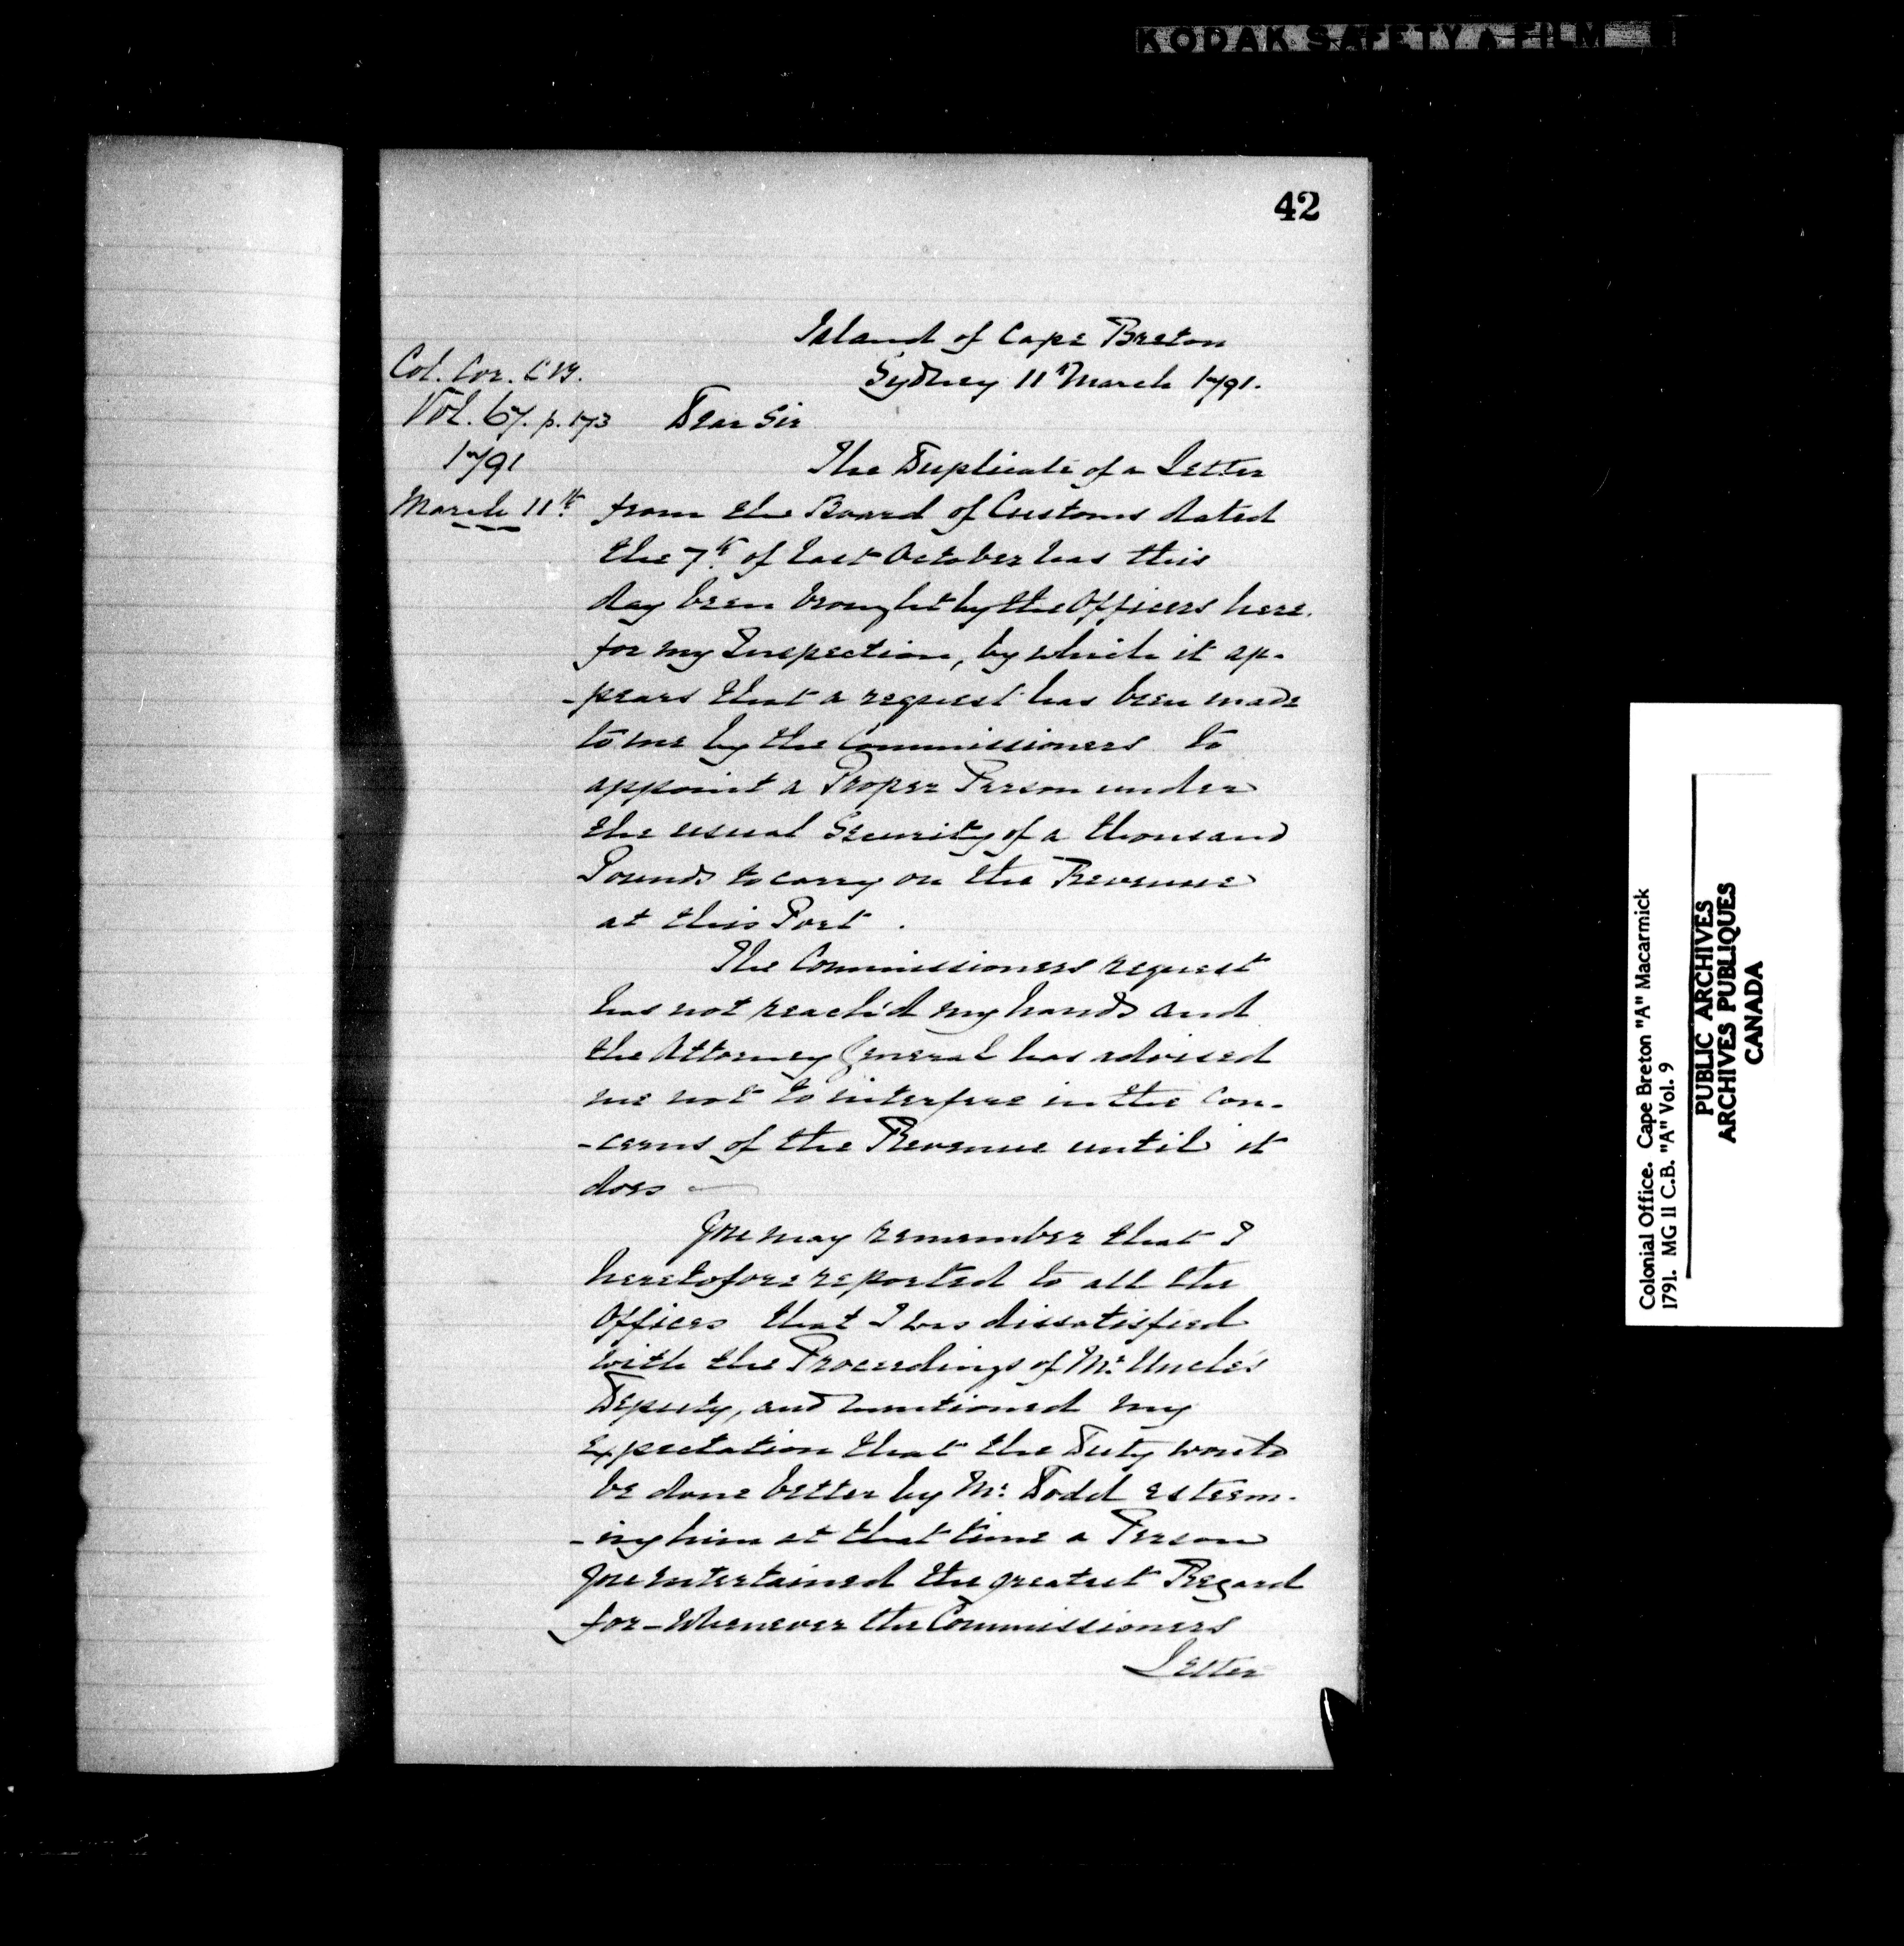 KODAK SAFETY FILM
42
Island of Cape Breton
Sydney 11th March 1791.
Col. Cor. C.B.
Vol. 67. p. 173
1791
March 11th
Dear Sir
The Duplicate of a Letter
from the Board of Customs dated
the 7th of last October has this
day been brought by the Officers here.
for my Inspection, by which it ap-
-pears that a request has been made
to me by the Commissioners to
appoint a Proper Person under
the usual Security of a thousand
Pounds to carry on the Revenue
at this Port.
The Commissioners request
has not reach'd my hands and
the Attorney General has advised
me not to interfere in the Con-
-cerns of the Revenue until it
does —
You may remember that I
heretofore reported to all the
Offices that I was dissatisfied
with the Proceedings of Mr. Uncle's
Deputy, and mentioned my
expectation that the Duty would
be done better by Mr. Dodd esteem-
-ing him at that time a Person
you entertained the greatest Regard
for — Whenever the Commissioners
Letter
Colonial Office. Cape Breton "A" Macarmick
1791. MG 11 C.B. "A" Vol. 9
PUBLIC ARCHIVES
ARCHIVES PUBLIQUES
CANADA